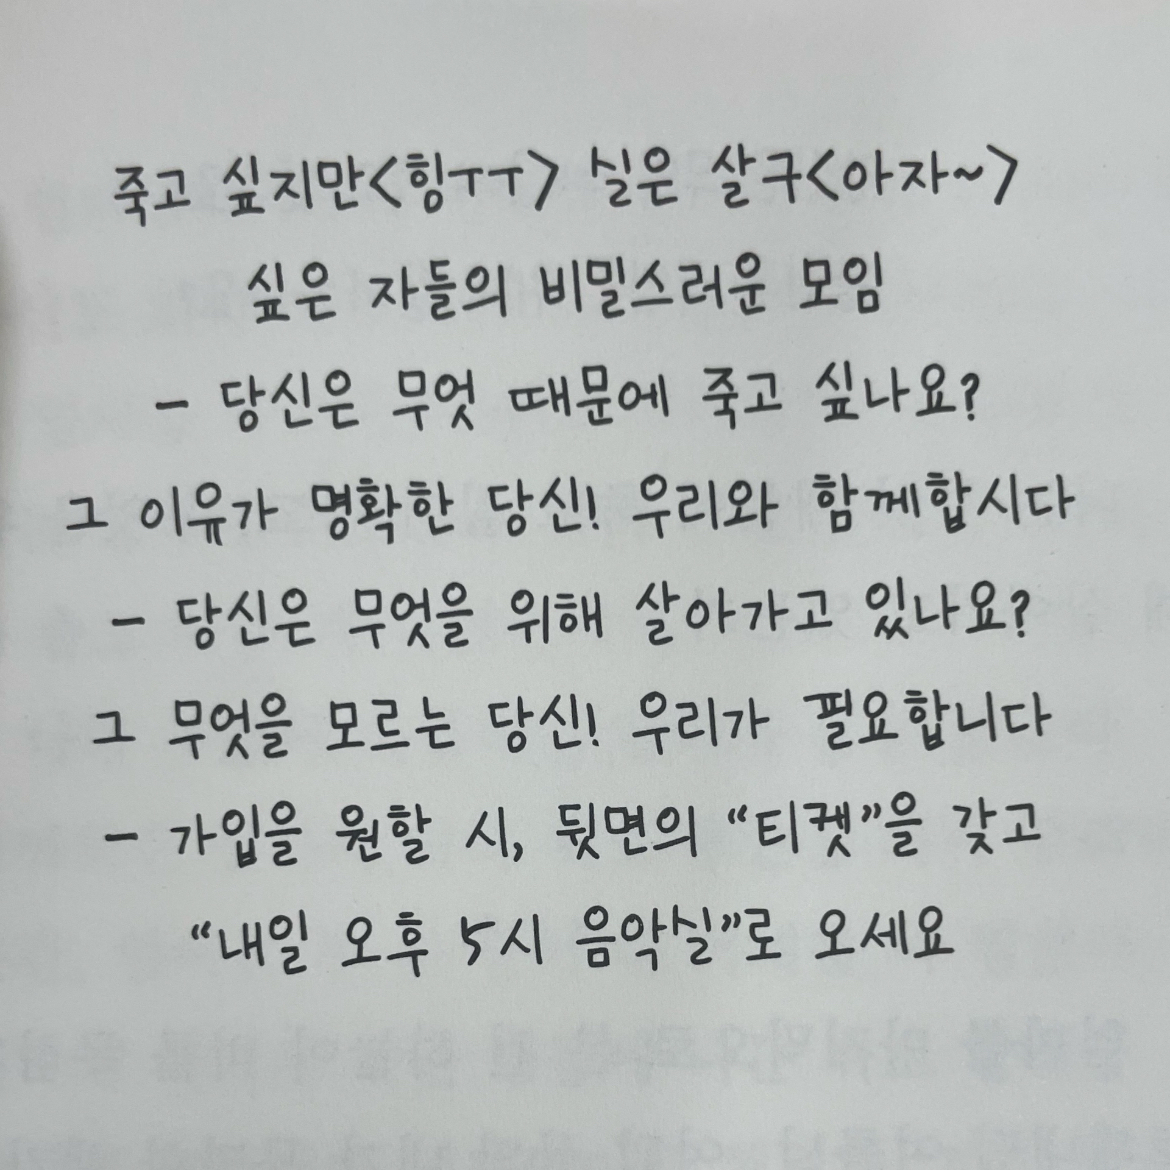 죽고 싶지만<힝ㅜㅜ> 실은 살구<아자~>
싶은 자들의 비밀스러운 모임
- 당신은 무엇 때문에 죽고 싶나요?
그 이유가 명확한 당신! 우리와 함께합시다
- 당신은 무엇을 위해 살아가고 있나요?
그 무엇을 모르는 당신! 우리가 필요합니다
- 가입을 원할 시, 뒷면의 “티켓”을 갖고
“내일 오후 5시 음악실”로 오세요